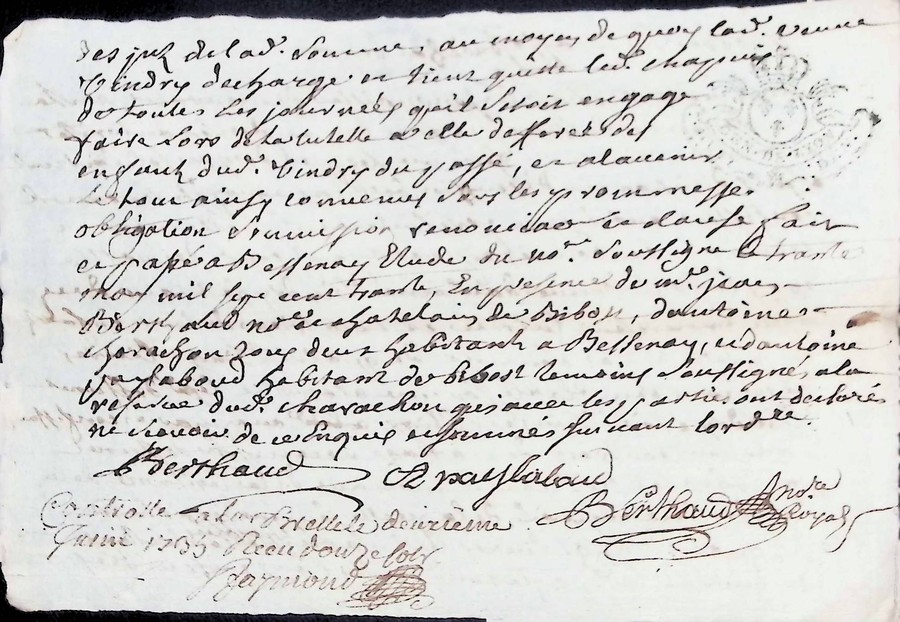 des jnt de lad. somme, au moyen de quoy lad. veuve
Vindry decharge et tient quitte led. chapuis
de toutes les journées quil setoit engage
faire lors de la tutelle a elle defferee de
enfant dud. Vindry du passé, et alavenir
Le tout ainsy convenus sous les promesse
obligation soumission renonciaon et clause fait
et passé a Bessenay Etude du no.re soussigne Le trante
may mil sept cent trante, En presence de m.e jean
Berthaud no.re et chatelain de Bibost, dantoine
charachon tous deux habitant a Bessenay, et dantoine
paylaboud habitant de bibost temoins soussignés, ala
reserve dud. charachon qui avec les partie ont declaré
ne scavoir de ce Enquis et sommés suivant lordre
Berthaud A paylaboud
Berthaud no.re Royal
Controllé a Larbresle le deuxieme
Juin 1735 Receu douze sols
Raymond